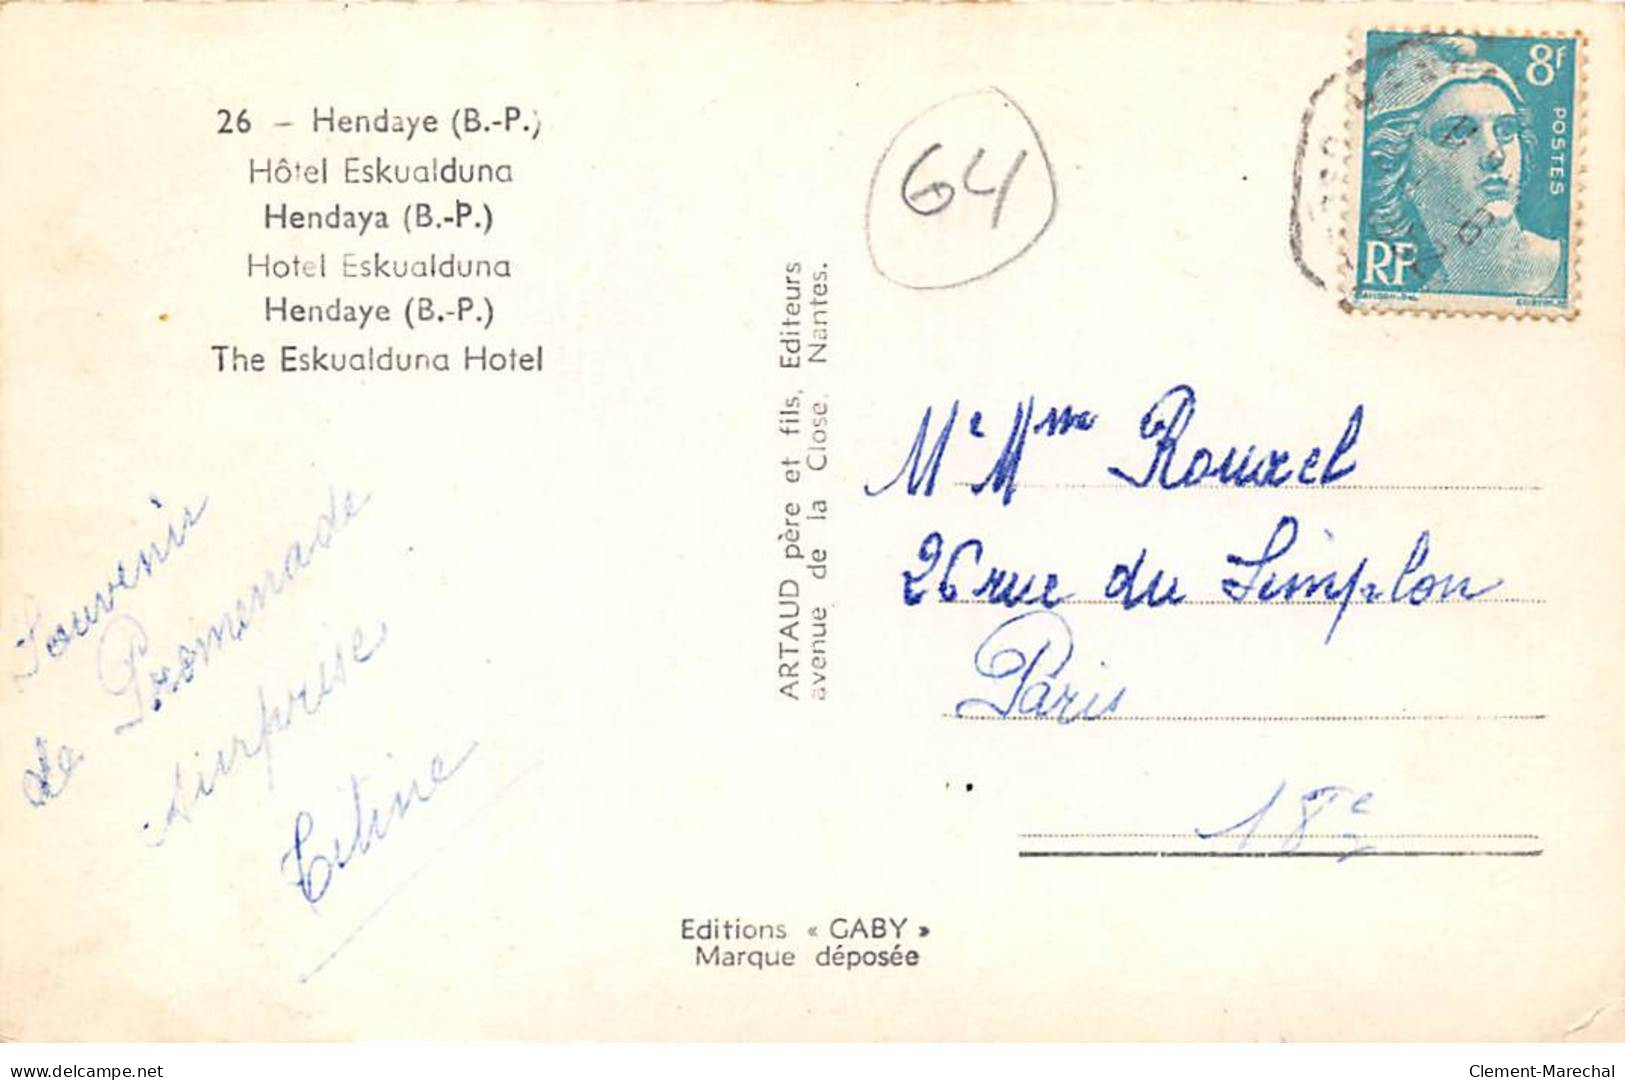 26 – Hendaye (B.-P.)
Hôtel Eskualduna
Hendaya (B.-P.)
Hotel Eskualduna
Hendaye (B.-P.)
The Eskualduna Hotel
Souvenir
de Promenade
surprise
Titine
ARTAUD père et fils, Editeurs
avenue de la Close. Nantes.
Editions « GABY »
Marque déposée
64
8f
POSTES
RF
Mr Mme Rouxel
26 rue du Simplon
Paris
18e
delcampe.net
Clement-Marechal